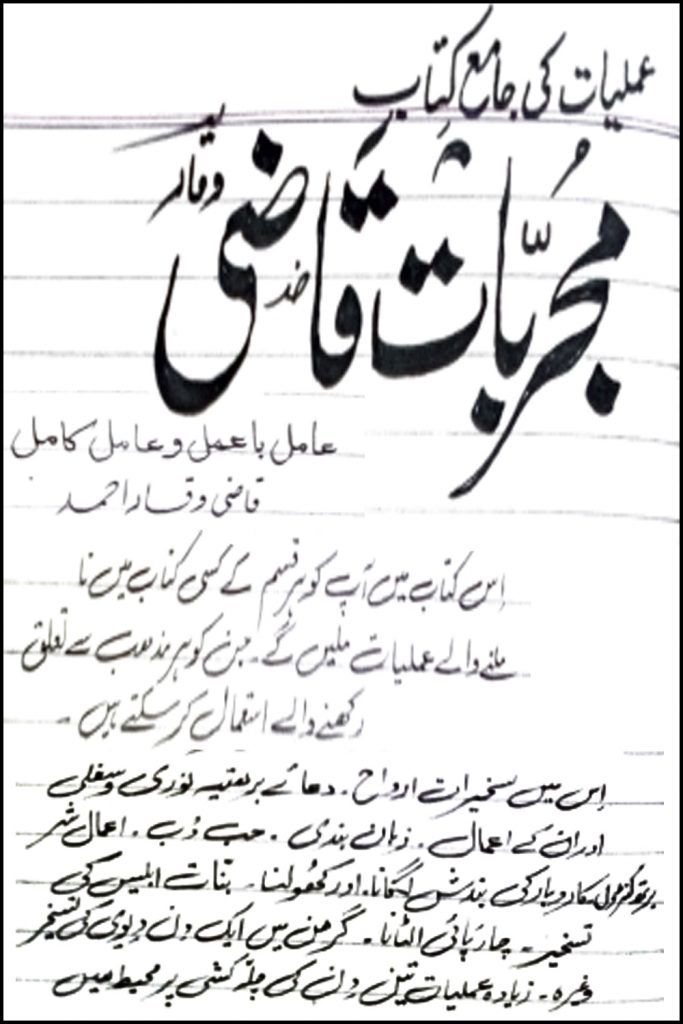 عملیات کی جامع کتاب
مجرّباتِ قاضی
وقار
عامل باعمل وعامل کامل
قاضی وقار احمد
اِس کتاب میں آپ کو ہر قسم کے کسی کتاب میں نا
ملنے والے عملیات ملیں گے۔ جن کو ہر مذہب سے تعلق
رکھنے والے استعمال کر سکتے ہیں۔
اِس میں تسخیرات ارواح۔ دعائے برھتیہ نوری وسفلی
اور ان کے اعمال۔ زبان بندی۔ حب وُب۔ اعمال شر
کاروبار کی بندش لگانا۔ اور کھولنا۔ بنات ابلیس کی
تسخیر۔ چارپائی الٹانا۔ گرھن میں ایک دن دیوی کی تسخیر
وغیرہ۔ زیادہ عملیات تین دن کی چلہ کشی پر محیط ہیں